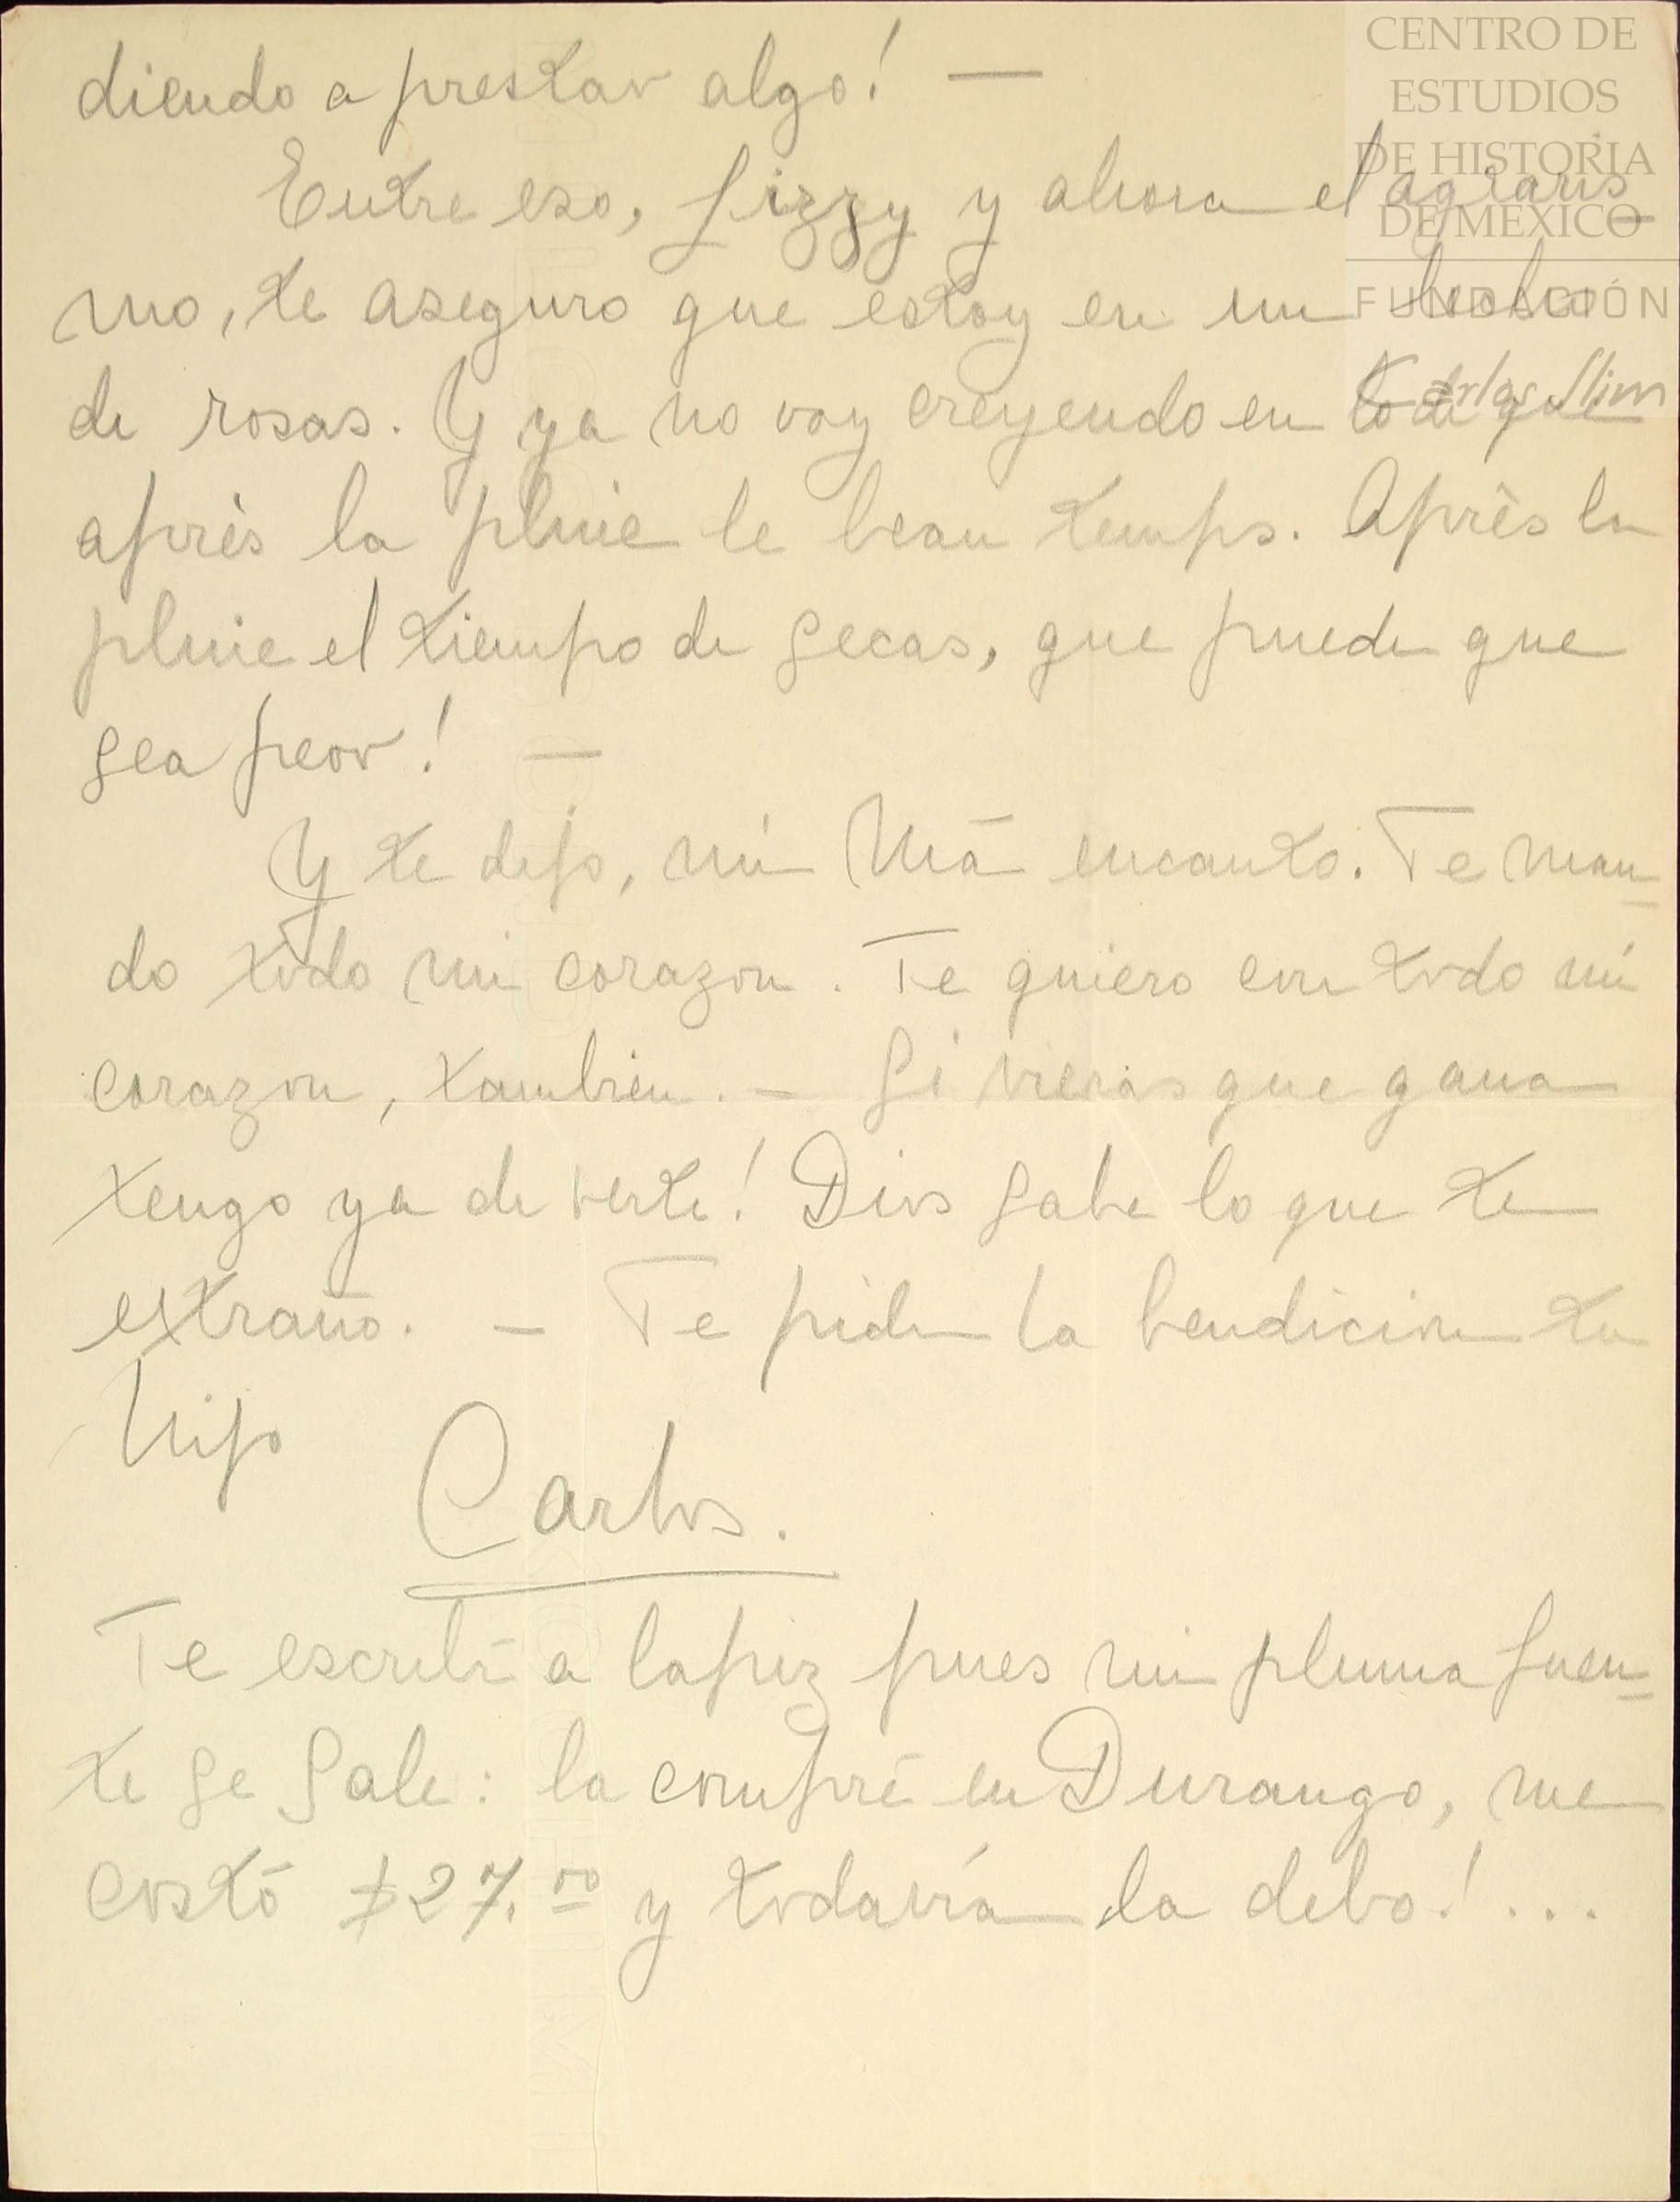 CENTRO DE
ESTUDIOS
DE HISTORIA
DE MÉXICO
FUNDACIÓN
Carlos Slim
diendo a prestar algo! —
Entre eso, Lizzy y ahora el agraris-
mo, te aseguro que estoy en un lecho
de rosas. Y ya no voy creyendo en lo de que
après la pluie le beau temps. Après la
pluie el tiempo de secas, que puede que
sea peor! —
Y te dejo, mi Má encanto. Te man-
do todo mi corazon. Te quiero con todo mi
corazon, tambien. — Si vieras que gana
tengo ya de verte! Dios sabe lo que te
extraño. — Te pide la bendicion tu
hijo
Carlos.
Te escribí a lapiz pues mi pluma fuen-
te se sale: la compré en Durango, me
costó $27.00 y todavía la debo! ...